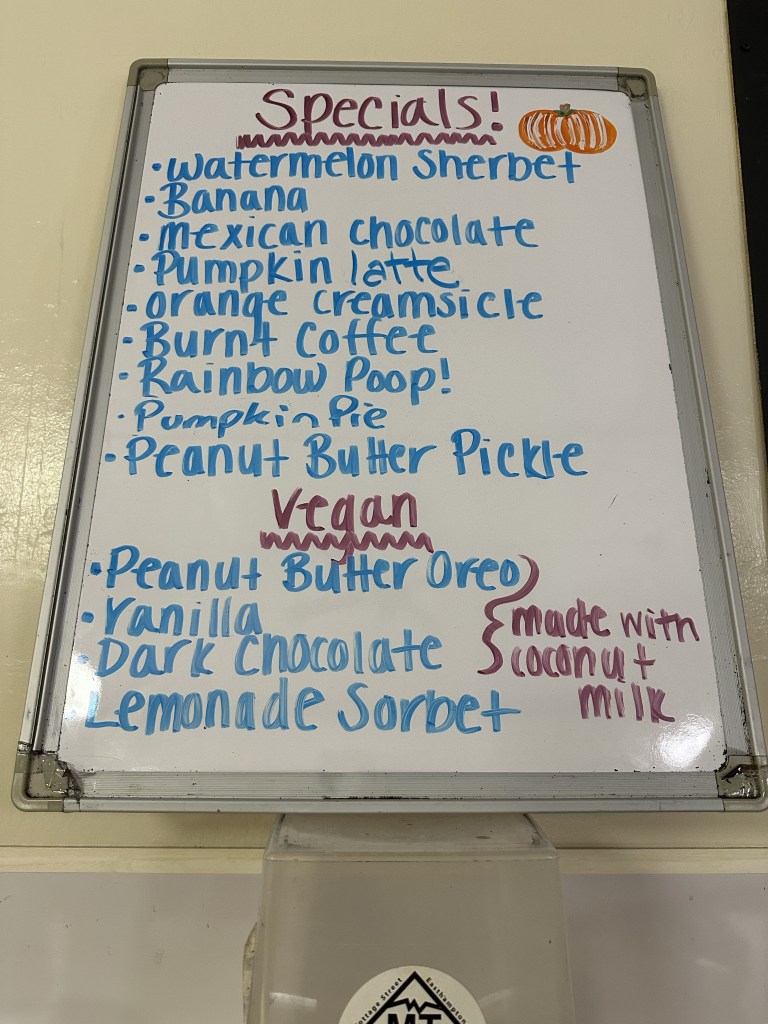 Specials!
• Watermelon Sherbet
• Banana
• Mexican chocolate
• Pumpkin latte
• orange creamsicle
• Burnt Coffee
• Rainbow Poop!
• Pumpkin Pie
• Peanut Butter Pickle
Vegan
• Peanut Butter Oreo
• Vanilla
• Dark Chocolate
• Lemonade Sorbet
made with
coconut
milk
Cottage Street Easthampton
MT